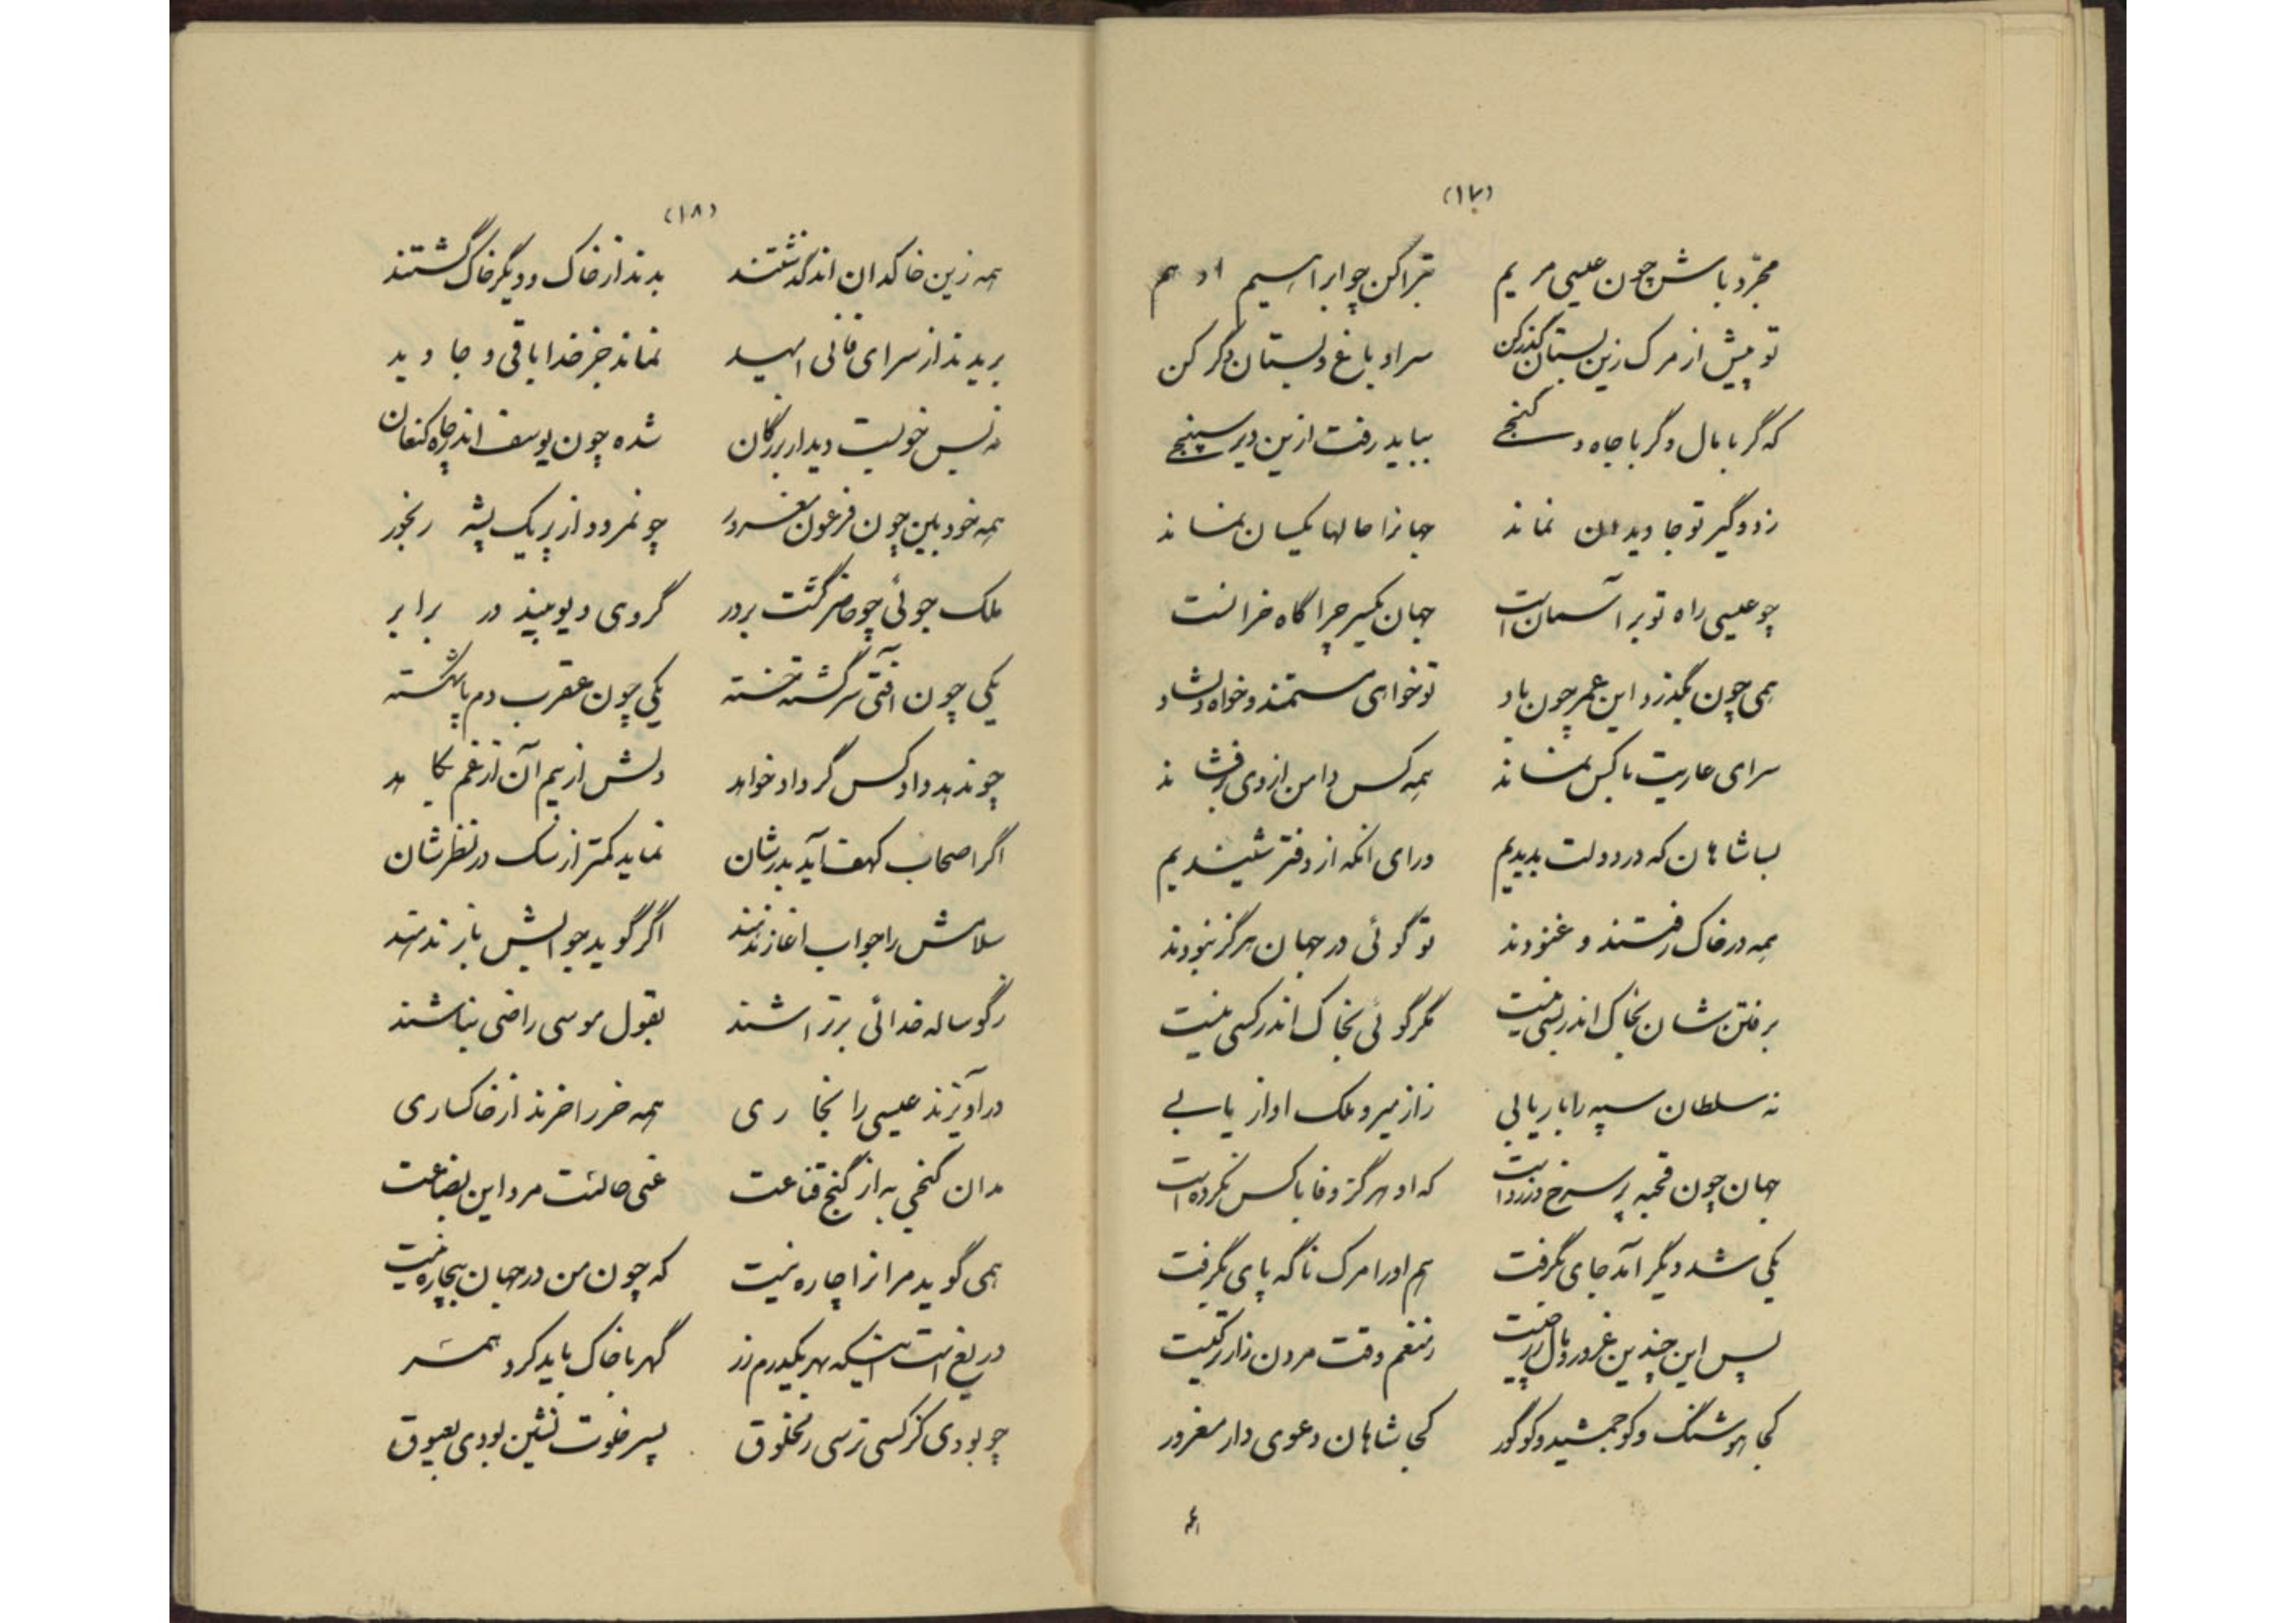 (۱۷)
مجرّد باش چون عیسی مریم تبرا کن چو ابراهیم ادهم
تو پیش از مرک زین بستان گذر کن سرا و باغ و بستان دگر کن
که گر با مال و گر با جاه و گنجے بباید رفت ازین دیر سپنجے
زد و گیر تو جاویدان نماند جهانرا حالها یکسان نماند
چو عیسی راه تو بر آسمان است جهان یکسر چراگاه خرانست
همی چون بگذرد این عمر چون باد تو خواهی مستمند و خواه دلشاد
سرای عاریت با کس نماند همه کس دامن از وی برفشاند
بسا شاهان که در دولت بدیدیم ورای انکه از دفتر شنیدیم
همه در خاک رفتند و غنودند تو گوئی در جهان هرگز نبودند
برفتن شان بخاک اندر بسی نیست مگر گوئی بخاک اندر کسی نیست
نه سلطان سپه را بار یابی ز از میر و ملک اواز یابے
جهان چون قحبه پر سرخ و زرد است که او هرگز وفا با کس نکرده است
یکی شد دیگر آمد جای بگرفت هم او را مرک ناگه پای بگرفت
پس این چندین غرور و مال ز منعم وقت مردن زارتر کیست
کجا هوشنگ و کو جمشید و کو گور کجا شاهان دعوی دار مغرور
(۱۸)
همه زین خاکدان اندر گذشتند بدند از خاک و دیگر خاک گشتند
بریدند از سرای فانی امید نماند جز خدا باقی و جاوید
نه بس خوبست دیدار بزرگان شده چون یوسف اندر چاه کنعان
همه خودبین چون فرعون مغرور چو نمرود از پر یک پشه رنجور
ملک جوئی چو حاضر گشت بر در گروی دیو بیند در برابر
یکی چون افتی سرگشته خسته یکی چون عقرب دم پا شکسته
چو ندهد داد کس گر داد خواهد دلش از بیم آن از غم بکاهد
اگر اصحاب کهف آید بدرشان نماید کمتر از سک در نظرشان
سلامش را جواب اغاز ندهند اگر گوید جوابش باز ندهند
ز گوساله خدائی برتراشند بقول موسی راضی نباشند
درآویزند عیسی را بخاری همه خر را خرند از خاکساری
مدان گنجی به از گنج قناعت غنی حالست مرد این بضاعت
همی گوید مر انرا چاره نیست که چون من در جهان بیچاره نیست
دریغ است اینکه بهر یکدرم زر گهر با خاک باید کرد همسر
چو بودی کز کسی ترسی ز مخلوق پسر خلوت نشین بودی بعیوق